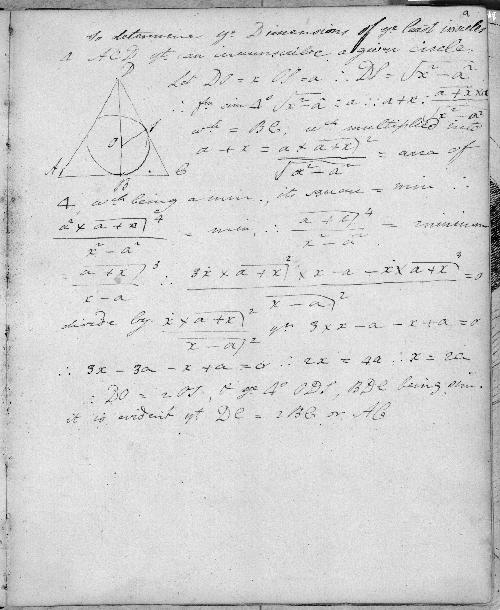 a
To determine ye Dimensions of ye least isosceles
Δ ACD yt can circumscribe a given circle.
D
Let DO = x OS = a ∴ DS = √x² − a²
∴ by sim Δs √x² − a² : a :: a + x : a + x × a / √x² − a²
wch = BC, wch multiplied into
a + x = a × (a + x)² / √x² − a² = area of
O S
A B C
Δ wch being a min., its square = min ∴
a² × (a + x)⁴ / x² − a² = min ∴ (a + x)⁴ / x² − a² = minimum
= (a + x)³ / x − a ∴ 3ẋ × (a + x)² × x − a − ẋ × (a + x)³ / (x − a)² = 0
divide by ẋ × (a + x)² / (x − a)² yn 3 × x − a − x + a = 0
∴ 3x − 3a − x + a = 0 ∴ 2x = 4a ∴ x = 2a
∴ DO = 2OS, & ye Δs ODS, BDC being sim.
it is evident yt DC = 2BC or AC